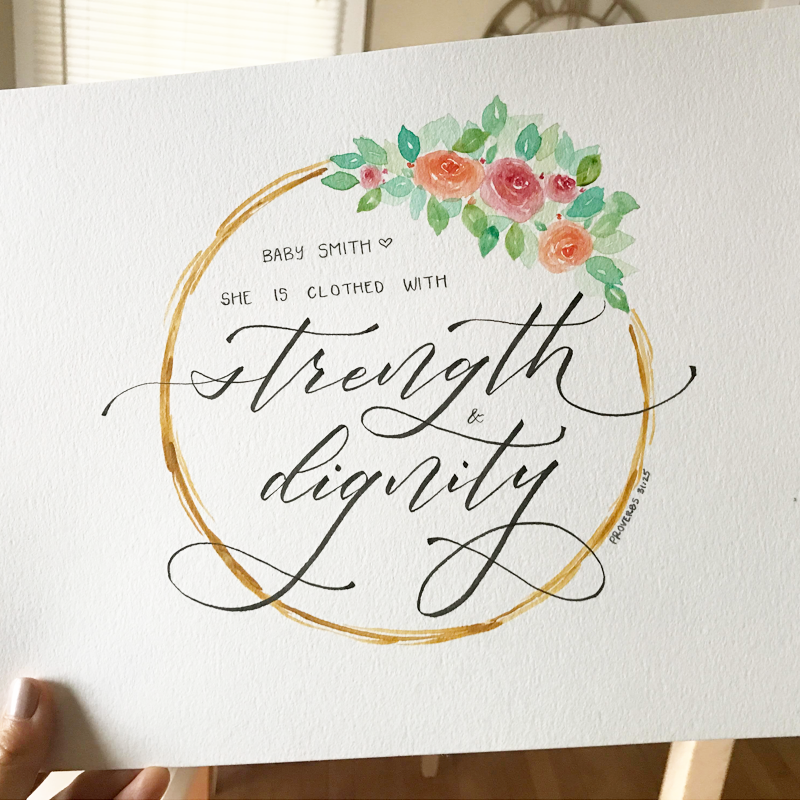 BABY SMITH ♡
SHE IS CLOTHED WITH
strength
&
dignity
PROVERBS 31:25